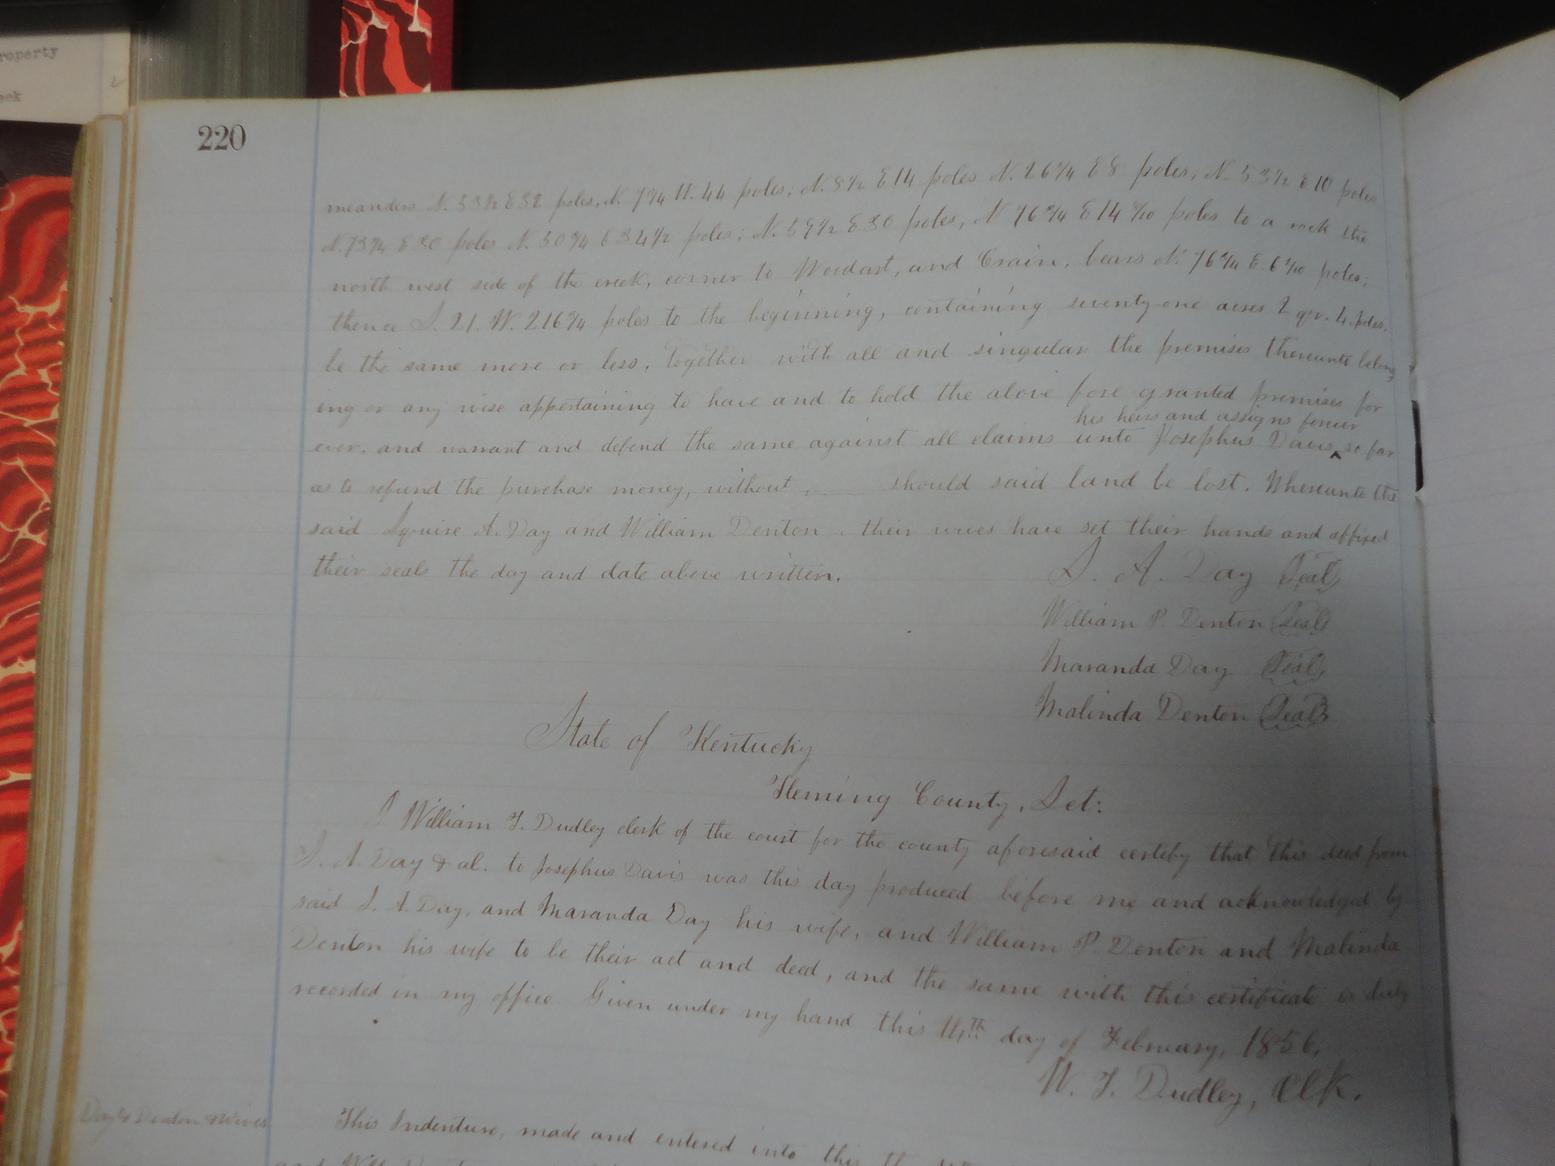 roperty
eek
220
meanders N. 53½ E 32 poles, N. 7¾ W. 44 poles; N. 8½ E 14 poles N. 26¾ E 8 poles, N. 53½ E 10 poles
N. 73¾ E 30 poles N. 50¾ E 34½ poles; N. 59½ E 30 poles, N 76¾ E 14 poles to a rock the
north west side of the creek, corner to and Crain, bears N. 76¾ E. 6 poles;
thence S. 21. W. 216¾ poles to the beginning, containing seventy-one acres 2 qr. 4 poles.
be the same more or less, together with all and singular the premises thereunto belong
ing or any wise appertaining to have and to hold the above fore granted premises for
his heirs and assigns forever
ever. and warrant and defend the same against all claims unto Josephus Davis, ‸ so far
as to refund the purchase money, without, should said land be lost. Whereunto the
said Squire A. Day and William Denton. their wives have set their hands and affixed
their seals the day and date above written.
S. A. Day Seal
William P. Denton Seal
Maranda Day Seal
Malinda Denton Seal
State of Kentucky
Fleming County, Sct:
I William T. Dudley clerk of the court for the county aforesaid certify that this deed from
S. A. Day & al. to Josephus Davis was this day produced before me and acknowledged by
said S. A. Day, and Maranda Day his wife, and William P. Denton and Malinda
Denton his wife to be their act and deed, and the same with this certificate is duly
recorded in my office. Given under my hand this 11th day of February, 1856.
W. T. Dudley, Clk.
Day & Denton & Wives
This Indenture, made and entered into this
and